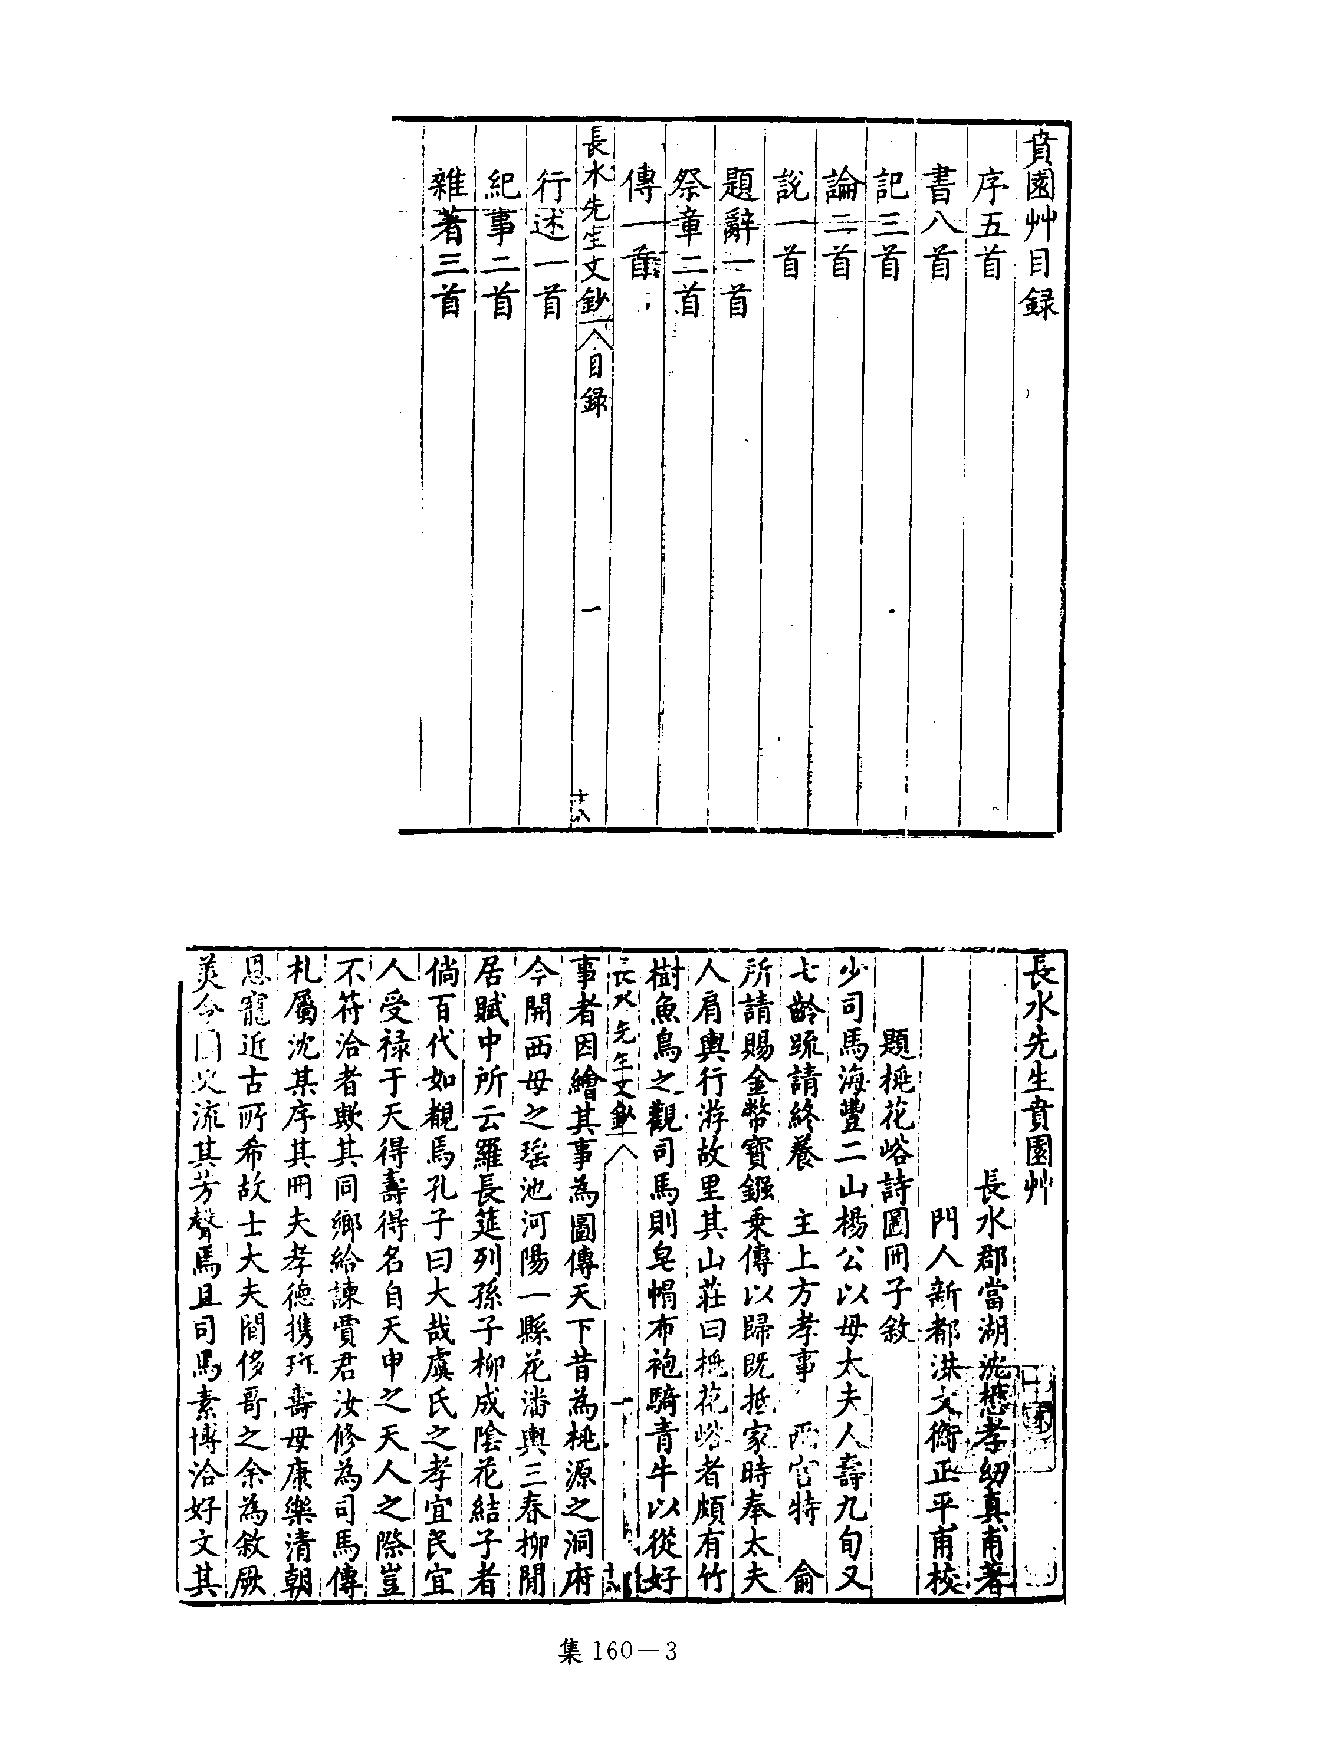 賁園艸目録
序五首
書八首
記三首
論二首
說一首
題辭一首
祭章二首
傳一首
長水先生文鈔 目録 一
行述一首
紀事二首
雜著三首
長水先生賁園艸
長水郡當湖沈懋孝幼真甫著
門人新都洪文衡正平甫校
題桃花峪詩圖冊子敘
少司馬海豐二山楊公以母太夫人壽九旬又
七齡疏請終養 主上方孝事 兩宮特 俞
所請賜金幣寶鏹乗傳以歸既抵家時奉太夫
人肩輿行游故里其山莊曰桃花峪者頗有竹
樹魚鳥之觀司馬則皂帽布袍騎青牛以從好
長水先生文鈔 一
事者因繪其事為圖傳天下昔為桃源之洞府
今開西母之瑶池河陽一縣花潘輿三春柳閒
居賦中所云羅長筵列孫子柳成陰花結子者
倘百代如覩焉孔子曰大哉虞氏之孝宜民宜
人受禄于天得壽得名自天申之天人之際豈
不符洽者歟其同鄉給諫賈君汝修為司馬傳
札屬沈某序其冊夫孝德携祚壽母康樂清朝
恩寵近古所希故士大夫閭侈哥之余為敘厥
美令 流其芳聲焉且司馬素博洽好文其
集 160－3